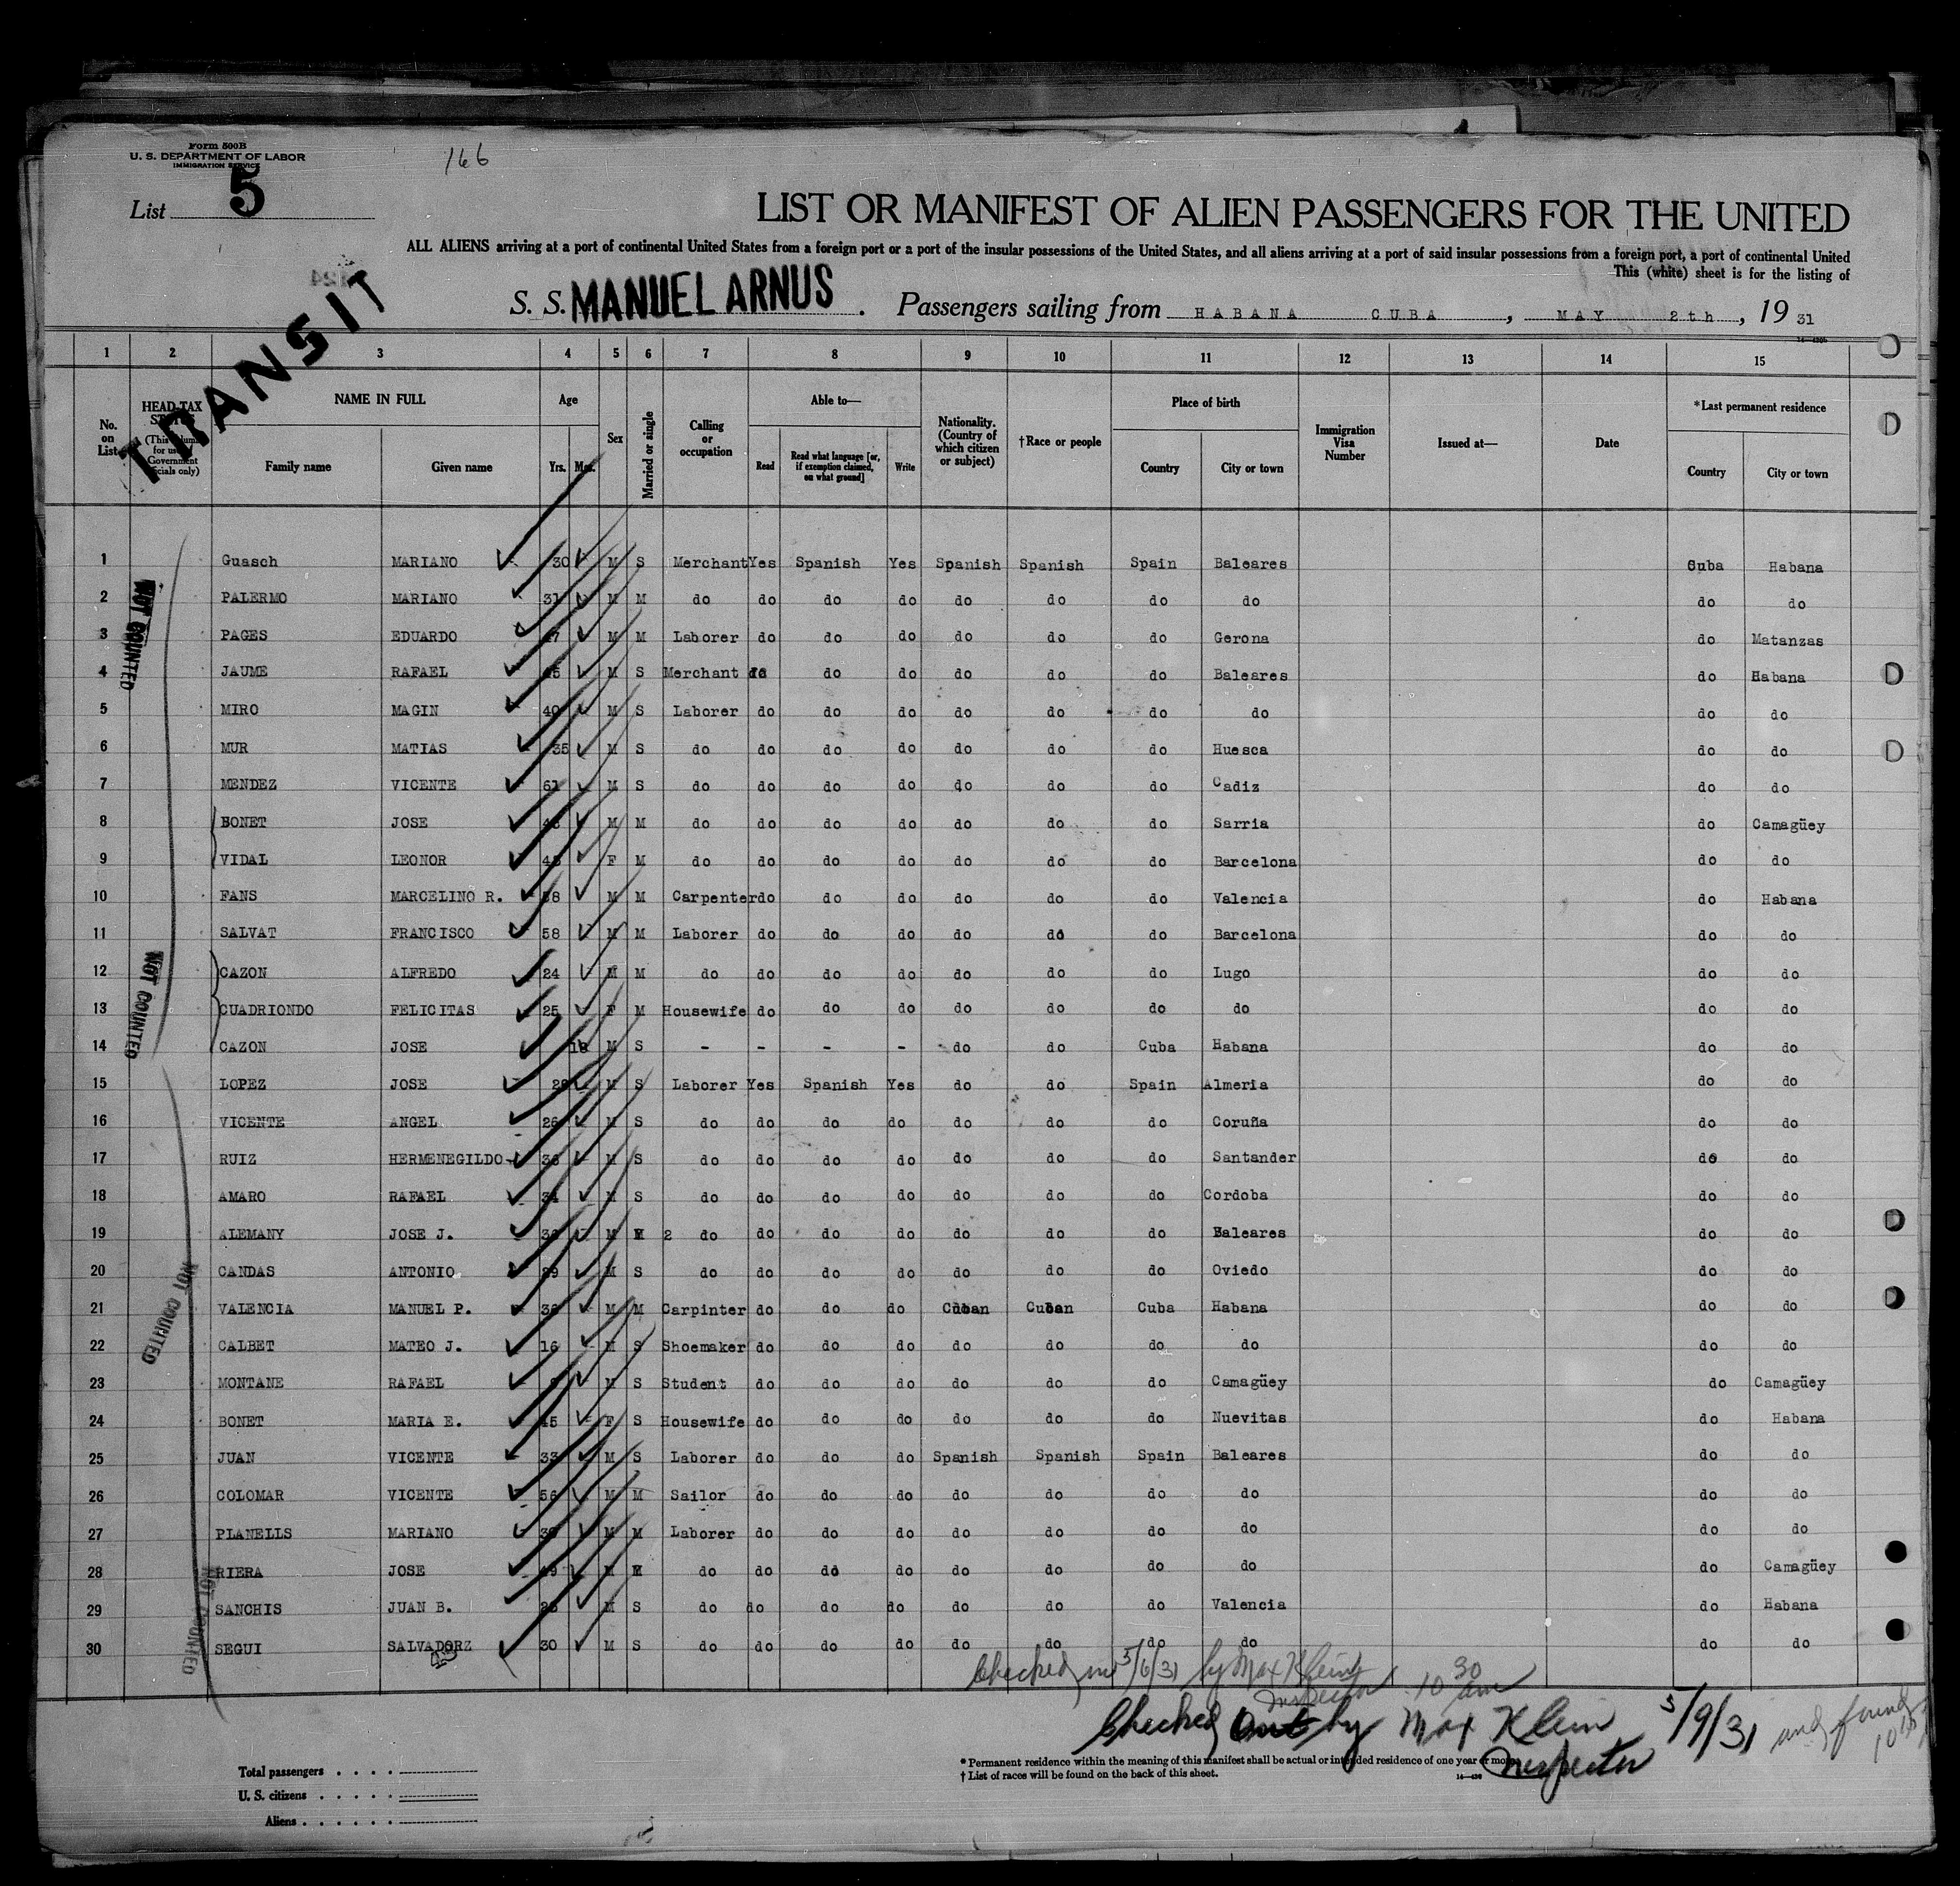 Form 500B
U. S. DEPARTMENT OF LABOR
IMMIGRATION SERVICE
166
List 5
LIST OR MANIFEST OF ALIEN PASSENGERS FOR THE UNITED
ALL ALIENS arriving at a port of continental United States from a foreign port or a port of the insular possessions of the United States, and all aliens arriving at a port of said insular possessions from a foreign port, a port of continental United
This (white) sheet is for the listing of
S. S. MANUEL ARNUS. Passengers sailing from HABANA CUBA, MAY 2th, 1931
TRANSIT
1 2 3 4 5 6 7 8 9 10 11 12 13 14 15
No. on List
HEAD-TAX
NAME IN FULL
Family name Given name
Age
Yrs. Mos.
Sex
Married or single
Calling or occupation
Able to—
Read
Read what language [or, if exemption claimed, on what ground]
Write
Nationality. (Country of which citizen or subject)
†Race or people
Place of birth
Country City or town
Immigration Visa Number
Issued at—
Date
*Last permanent residence
Country City or town
1 Guasch MARIANO 30 M S Merchant Yes Spanish Yes Spanish Spanish Spain Baleares Cuba Habana
2 PALERMO MARIANO 31 M M do do do do do do do do do do
3 PAGES EDUARDO M M Laborer do do do do do do Gerona do Matanzas
4 JAUME RAFAEL M S Merchant do do do do do do Baleares do Habana
5 MIRO MAGIN 40 M S Laborer do do do do do do do do do
6 MUR MATIAS 35 M S do do do do do do do Huesca do do
7 MENDEZ VICENTE 61 M S do do do do do do do Cadiz do do
8 BONET JOSE M M do do do do do do do Sarria do Camagüey
9 VIDAL LEONOR F M do do do do do do do Barcelona do do
10 FANS MARCELINO R. M M Carpenter do do do do do do Valencia do Habana
11 SALVAT FRANCISCO 58 M M Laborer do do do do do do Barcelona do do
12 CAZON ALFREDO 24 M M do do do do do do do Lugo do do
13 CUADRIONDO FELICITAS 25 F M Housewife do do do do do do do do do
14 CAZON JOSE M S - - - - do do Cuba Habana do do
15 LOPEZ JOSE M S Laborer Yes Spanish Yes do do Spain Almeria do do
16 VICENTE ANGEL M S do do do do do do do Coruña do do
17 RUIZ HERMENEGILDO M S do do do do do do do Santander do do
18 AMARO RAFAEL M S do do do do do do do Cordoba do do
19 ALEMANY JOSE J. M 2 do do do do do do do Baleares do do
20 CANDAS ANTONIO M S do do do do do do do Oviedo do do
21 VALENCIA MANUEL P. M M Carpinter do do do Cuban Cuban Cuba Habana do do
22 CALBET MATEO J. 16 M S Shoemaker do do do do do do do do do
23 MONTANE RAFAEL M S Student do do do do do do Camagüey do Camagüey
24 BONET MARIA E. F S Housewife do do do do do do Nuevitas do Habana
25 JUAN VICENTE 33 M S Laborer do do do Spanish Spanish Spain Baleares do do
26 COLOMAR VICENTE 56 M M Sailor do do do do do do do do do
27 PLANELLS MARIANO M M Laborer do do do do do do do do do
28 RIERA JOSE M do do do do do do do do do Camagüey
29 SANCHIS JUAN B. M S do do do do do do do Valencia do Habana
30 SEGUI SALVADORZ 30 M S do do do do do do do do do do
NOT COUNTED
NOT COUNTED
NOT COUNTED
NOT COUNTED
Checked in 5/6/31 by Max Klein 10 30 am
Inspector
Checked Out by Max Klein 5/9/31 and found
Inspector
*Permanent residence within the meaning of this manifest shall be actual or intended residence of one year or more.
†List of races will be found on the back of this sheet.
Total passengers
U. S. citizens
Aliens